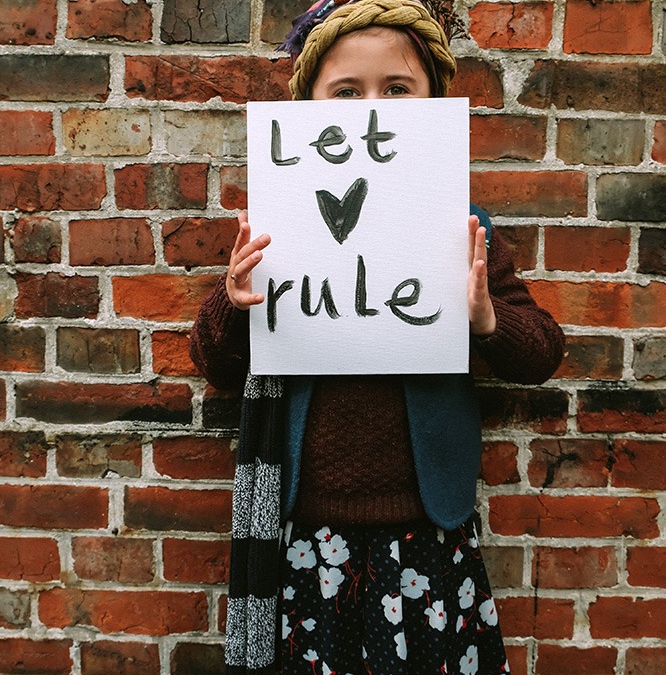 Let
♥
rule